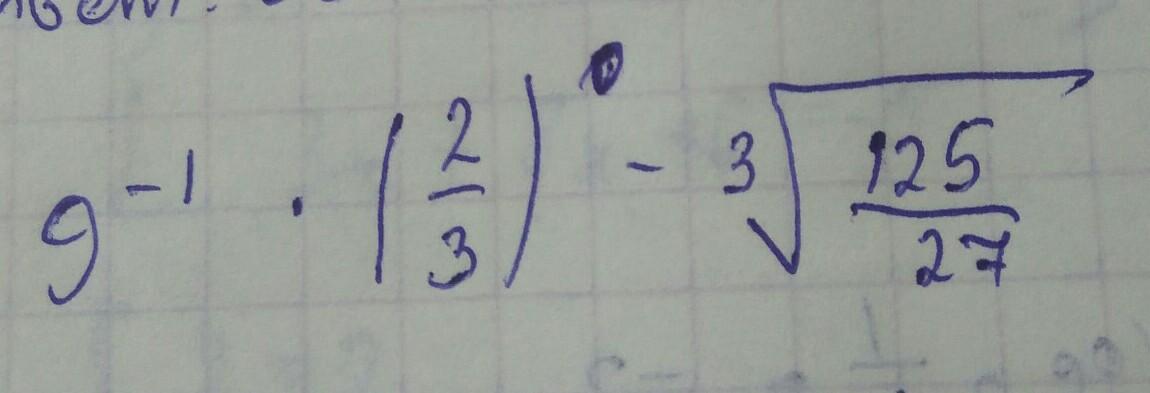 9⁻¹ · (2/3)⁰ - ³√(125/27)